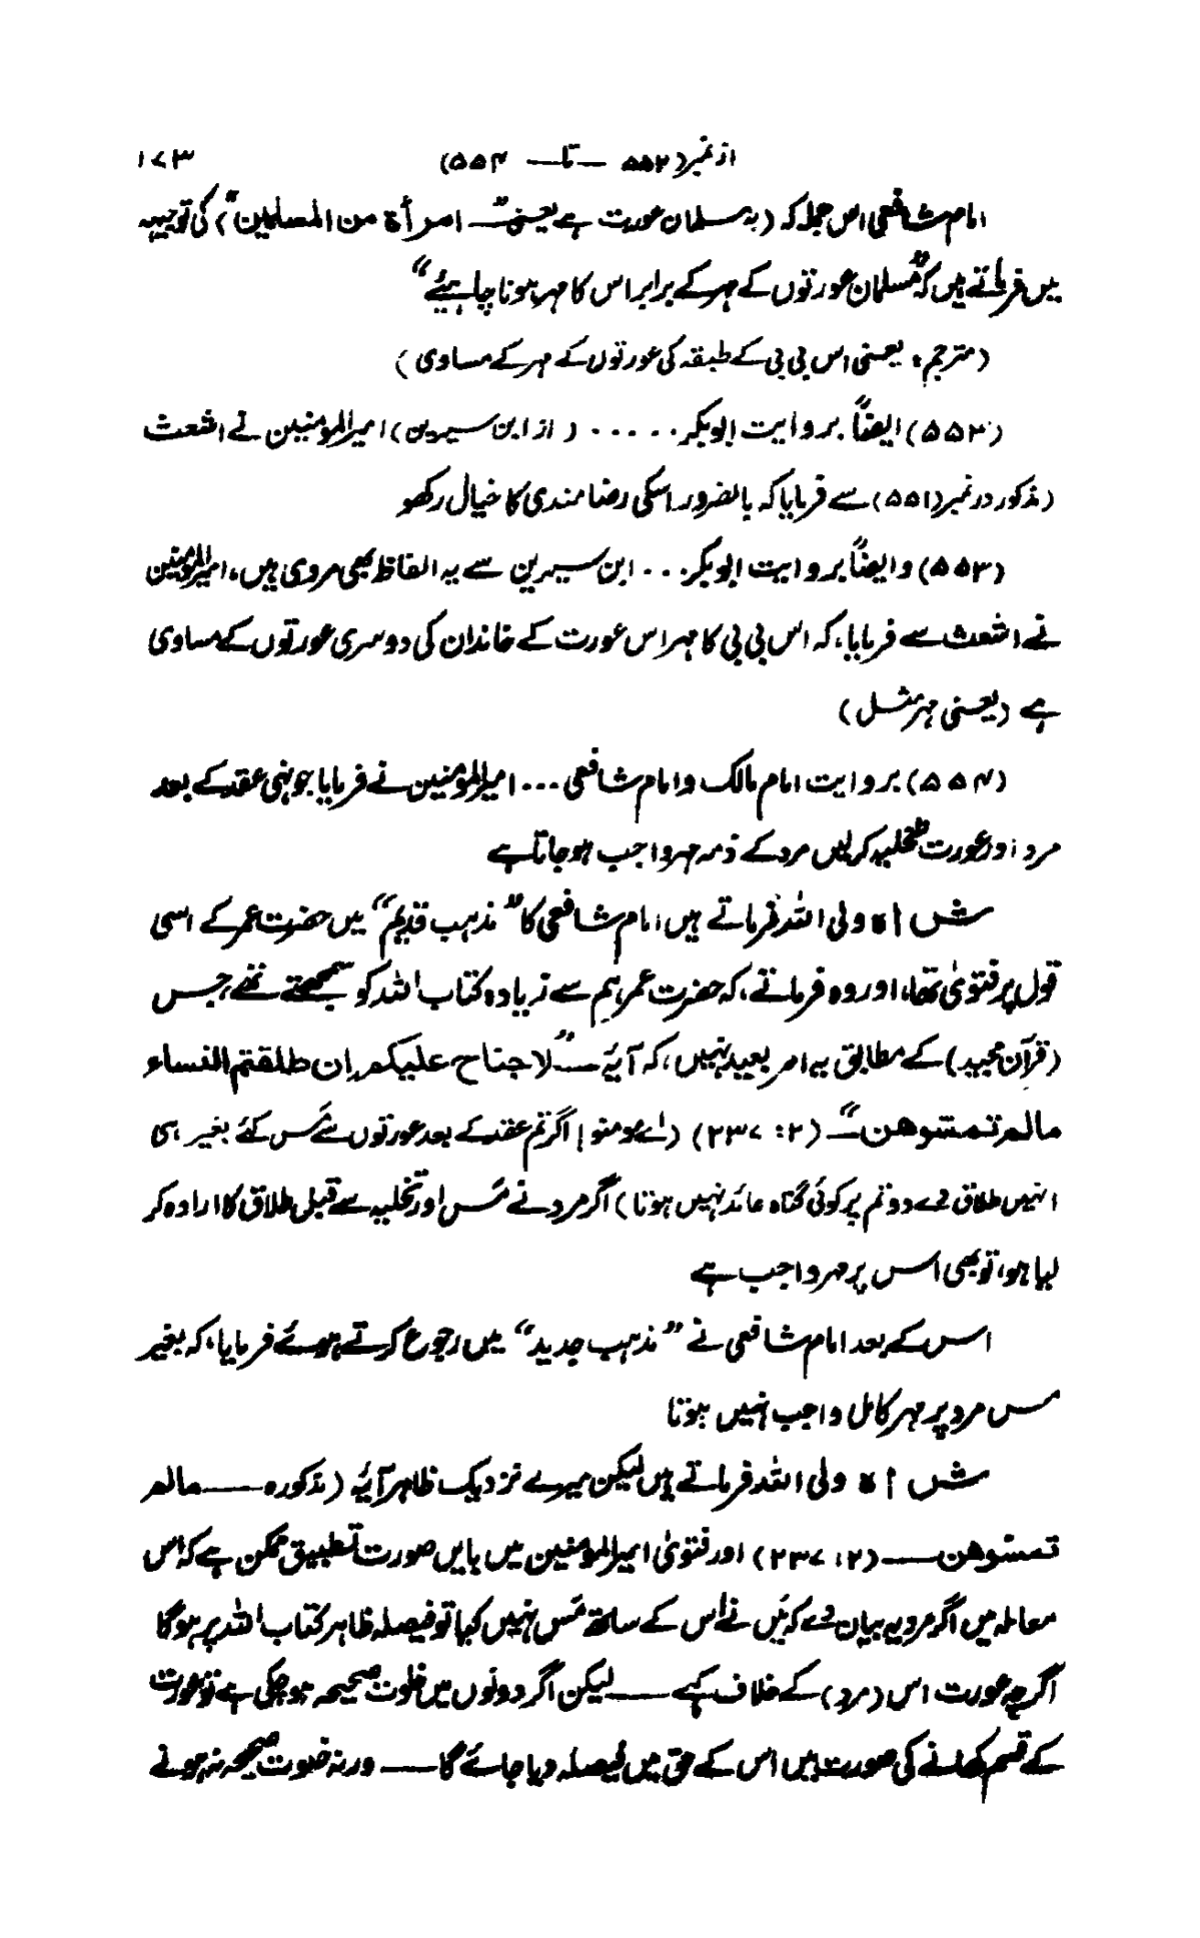 از نمبر (۵۵۲ — تا — ۵۵۴) ۱۷۳
امام شافعی اس جملہ کہ (بہ مسلمان عورت ہے یعنی — امرأة من المسلمین“) کی توجیہہ
میں فرماتے ہیں کہ ”مسلمان عورتوں کے مہر کے برابر اس کا مہر ہونا چاہیئے“
(مترجم: یعنی اس بی بی کے طبقہ کی عورتوں کے مہر کے مساوی)
(۵۵۲) ایضاً بروایت ابوبکر ..... (از ابن سیرین) امیرالمؤمنین نے اشعث
(مذکور در نمبر (۵۵۱) سے فرمایا کہ بالضرور اسکی رضامندی کا خیال رکھو
(۵۵۳) وایضاً بروایت ابوبکر ... ابن سیرین سے یہ الفاظ بھی مروی ہیں، امیرالمؤمنین
نے اشعث سے فرمایا، کہ اس بی بی کا مہر اس عورت کے خاندان کی دوسری عورتوں کے مساوی
ہے (یعنی مہر مثل)
(۵۵۴) بروایت امام مالک و امام شافعی ... امیرالمؤمنین نے فرمایا جونہی عقد کے بعد
مرد اور عورت تخلیہ کر لیں مرد کے ذمہ مہر واجب ہو جاتا ہے
شاہ ولی اللہ فرماتے ہیں امام شافعی کا ”مذہب قدیم“ میں حضرت عمر کے اسی
قول پر فتویٰ تھا، اور وہ فرماتے، کہ حضرت عمر ہم سے زیادہ کتاب اللہ کو سمجھتے تھے، جس
(قرآن مجید) کے مطابق یہ امر بعید نہیں، کہ آیۂ — ”لا جناح علیکم ان طلقتم النساء
مالم تمسوهن“ — (۲: ۲۳۷) (اے مومنو! اگر تم عقد کے بعد عورتوں سے مَس کئے بغیر ہی
انہیں طلاق دے دو تم پر کوئی گناہ عائد نہیں ہوتا) اگر مرد نے مَس اور تخلیہ سے قبل طلاق کا ارادہ کر
لیا ہو، تو بھی اس پر مہر واجب ہے
اس کے بعد امام شافعی نے ”مذہب جدید“ میں رجوع کرتے ہوئے فرمایا، کہ بغیر
مس مرد پر مہر کامل واجب نہیں ہوتا
شاہ ولی اللہ فرماتے ہیں لیکن میرے نزدیک ظاہر آیۂ (مذکورہ — مالم
تمسوهن — (۲: ۲۳۷) اور فتویٰ امیرالمؤمنین میں بایں صورت تطبیق ممکن ہے کہ اس
معاملہ میں اگر مرد یہ بیان دے کہ میں نے اس کے ساتھ مَس نہیں کیا تو فیصلہ ظاہر کتاب اللہ پر ہوگا
اگرچہ عورت اس (مرد) کے خلاف کہے — لیکن اگر دونوں میں خلوت صحیحہ ہو چکی ہے تو عورت
کے قسم کھانے کی صورت میں اس کے حق میں فیصلہ دیا جائے گا — ورنہ خلوت صحیحہ نہ ہونے